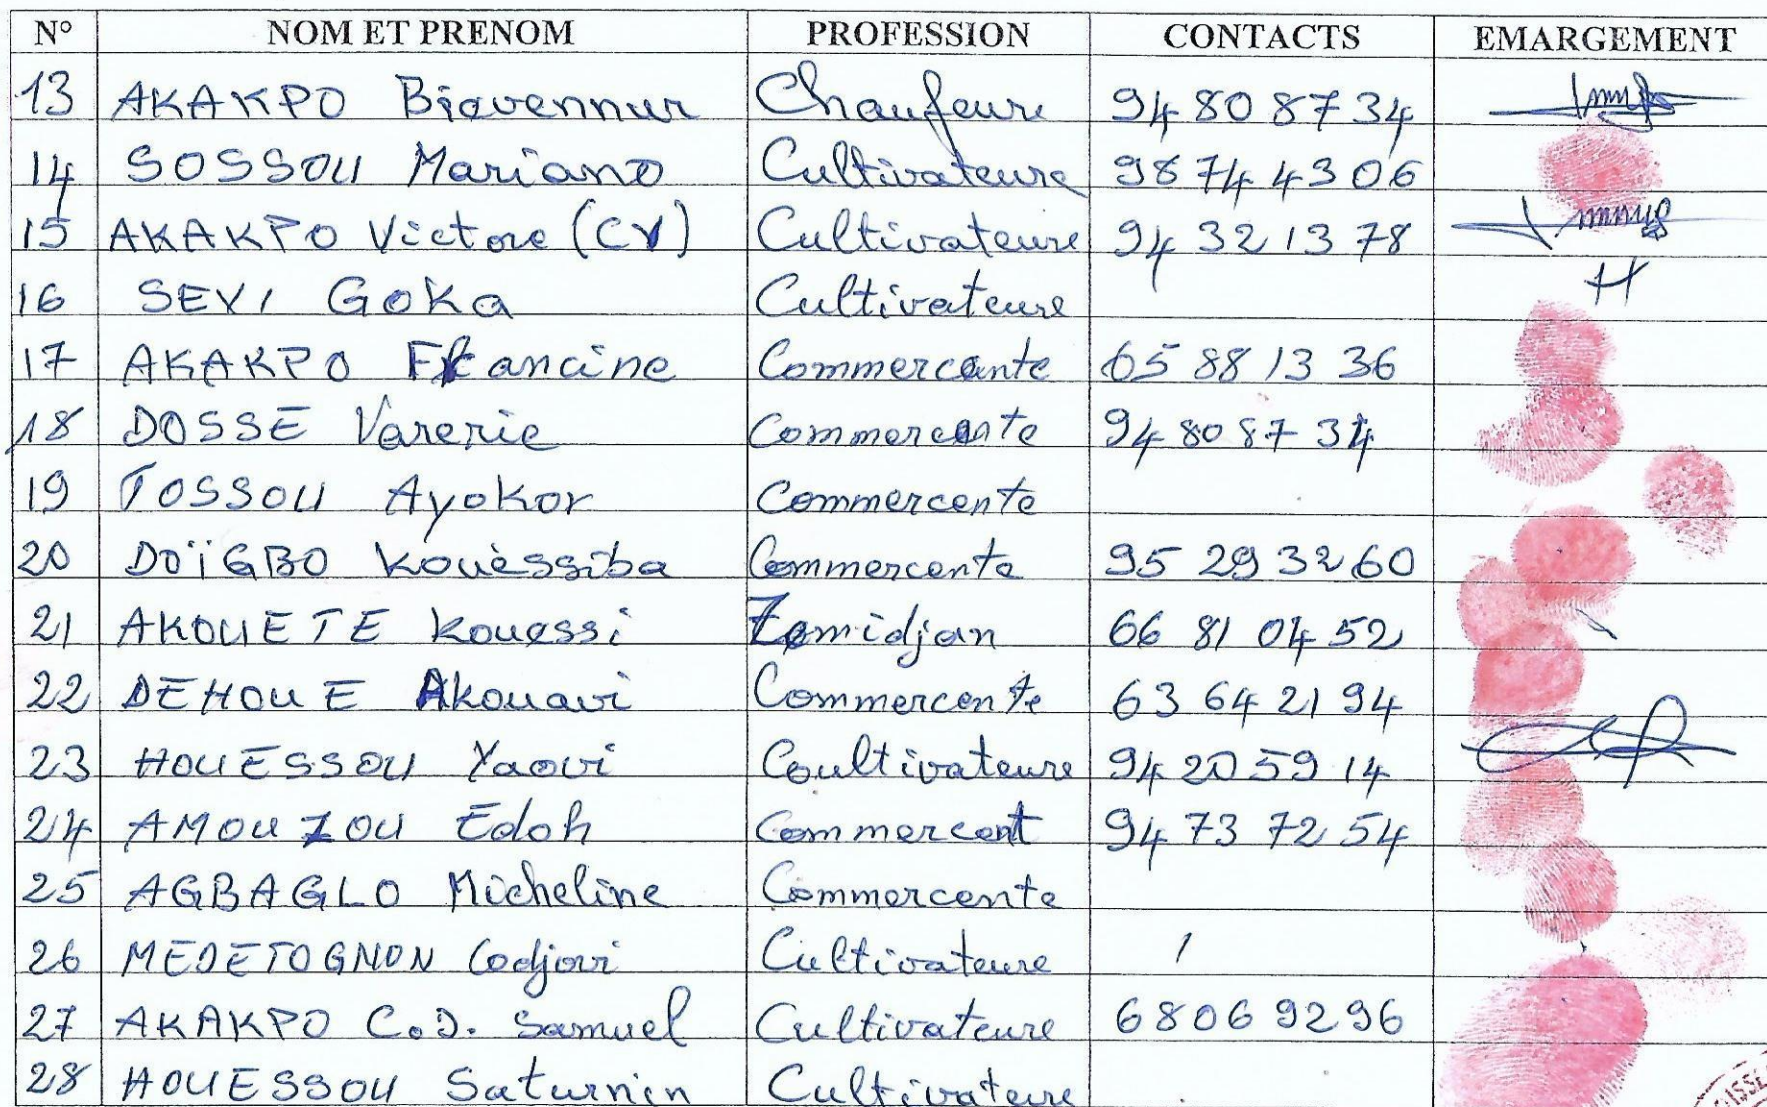 N° NOM ET PRENOM PROFESSION CONTACTS EMARGEMENT
13 AKAKPO Biavennur Chaufeure 94 80 87 34
14 SOSSOU Mariano Cultivateure 98 74 43 06
15 AKAKPO Victore (CV) Cultivateure 94 32 13 78
16 SEVI GOKa Cultivateure H
17 AKAKPO Francine Commercante 65 88 13 36
18 DOSSE Varerie Commercante 94 80 87 34
19 TOSSOU Ayokor Commercente
20 DOÏGBO Kouèssiba Commercente 95 29 32 60
21 AKOUETE Kouassi Zemidjan 66 81 04 52
22 DEHOUE Akouavi Commercente 63 64 21 94
23 HOUESSOU Yaovi Coultivateure 94 20 59 14
24 AMOUZOU Edoh Commercent 94 73 72 54
25 AGBAGLO Micheline Commercente
26 MEDETOGNON Codjovi Cultivateure /
27 AKAKPO C.D. Samuel Cultivateure 68 06 92 96
28 HOUESSOU Saturnin Cultivateure